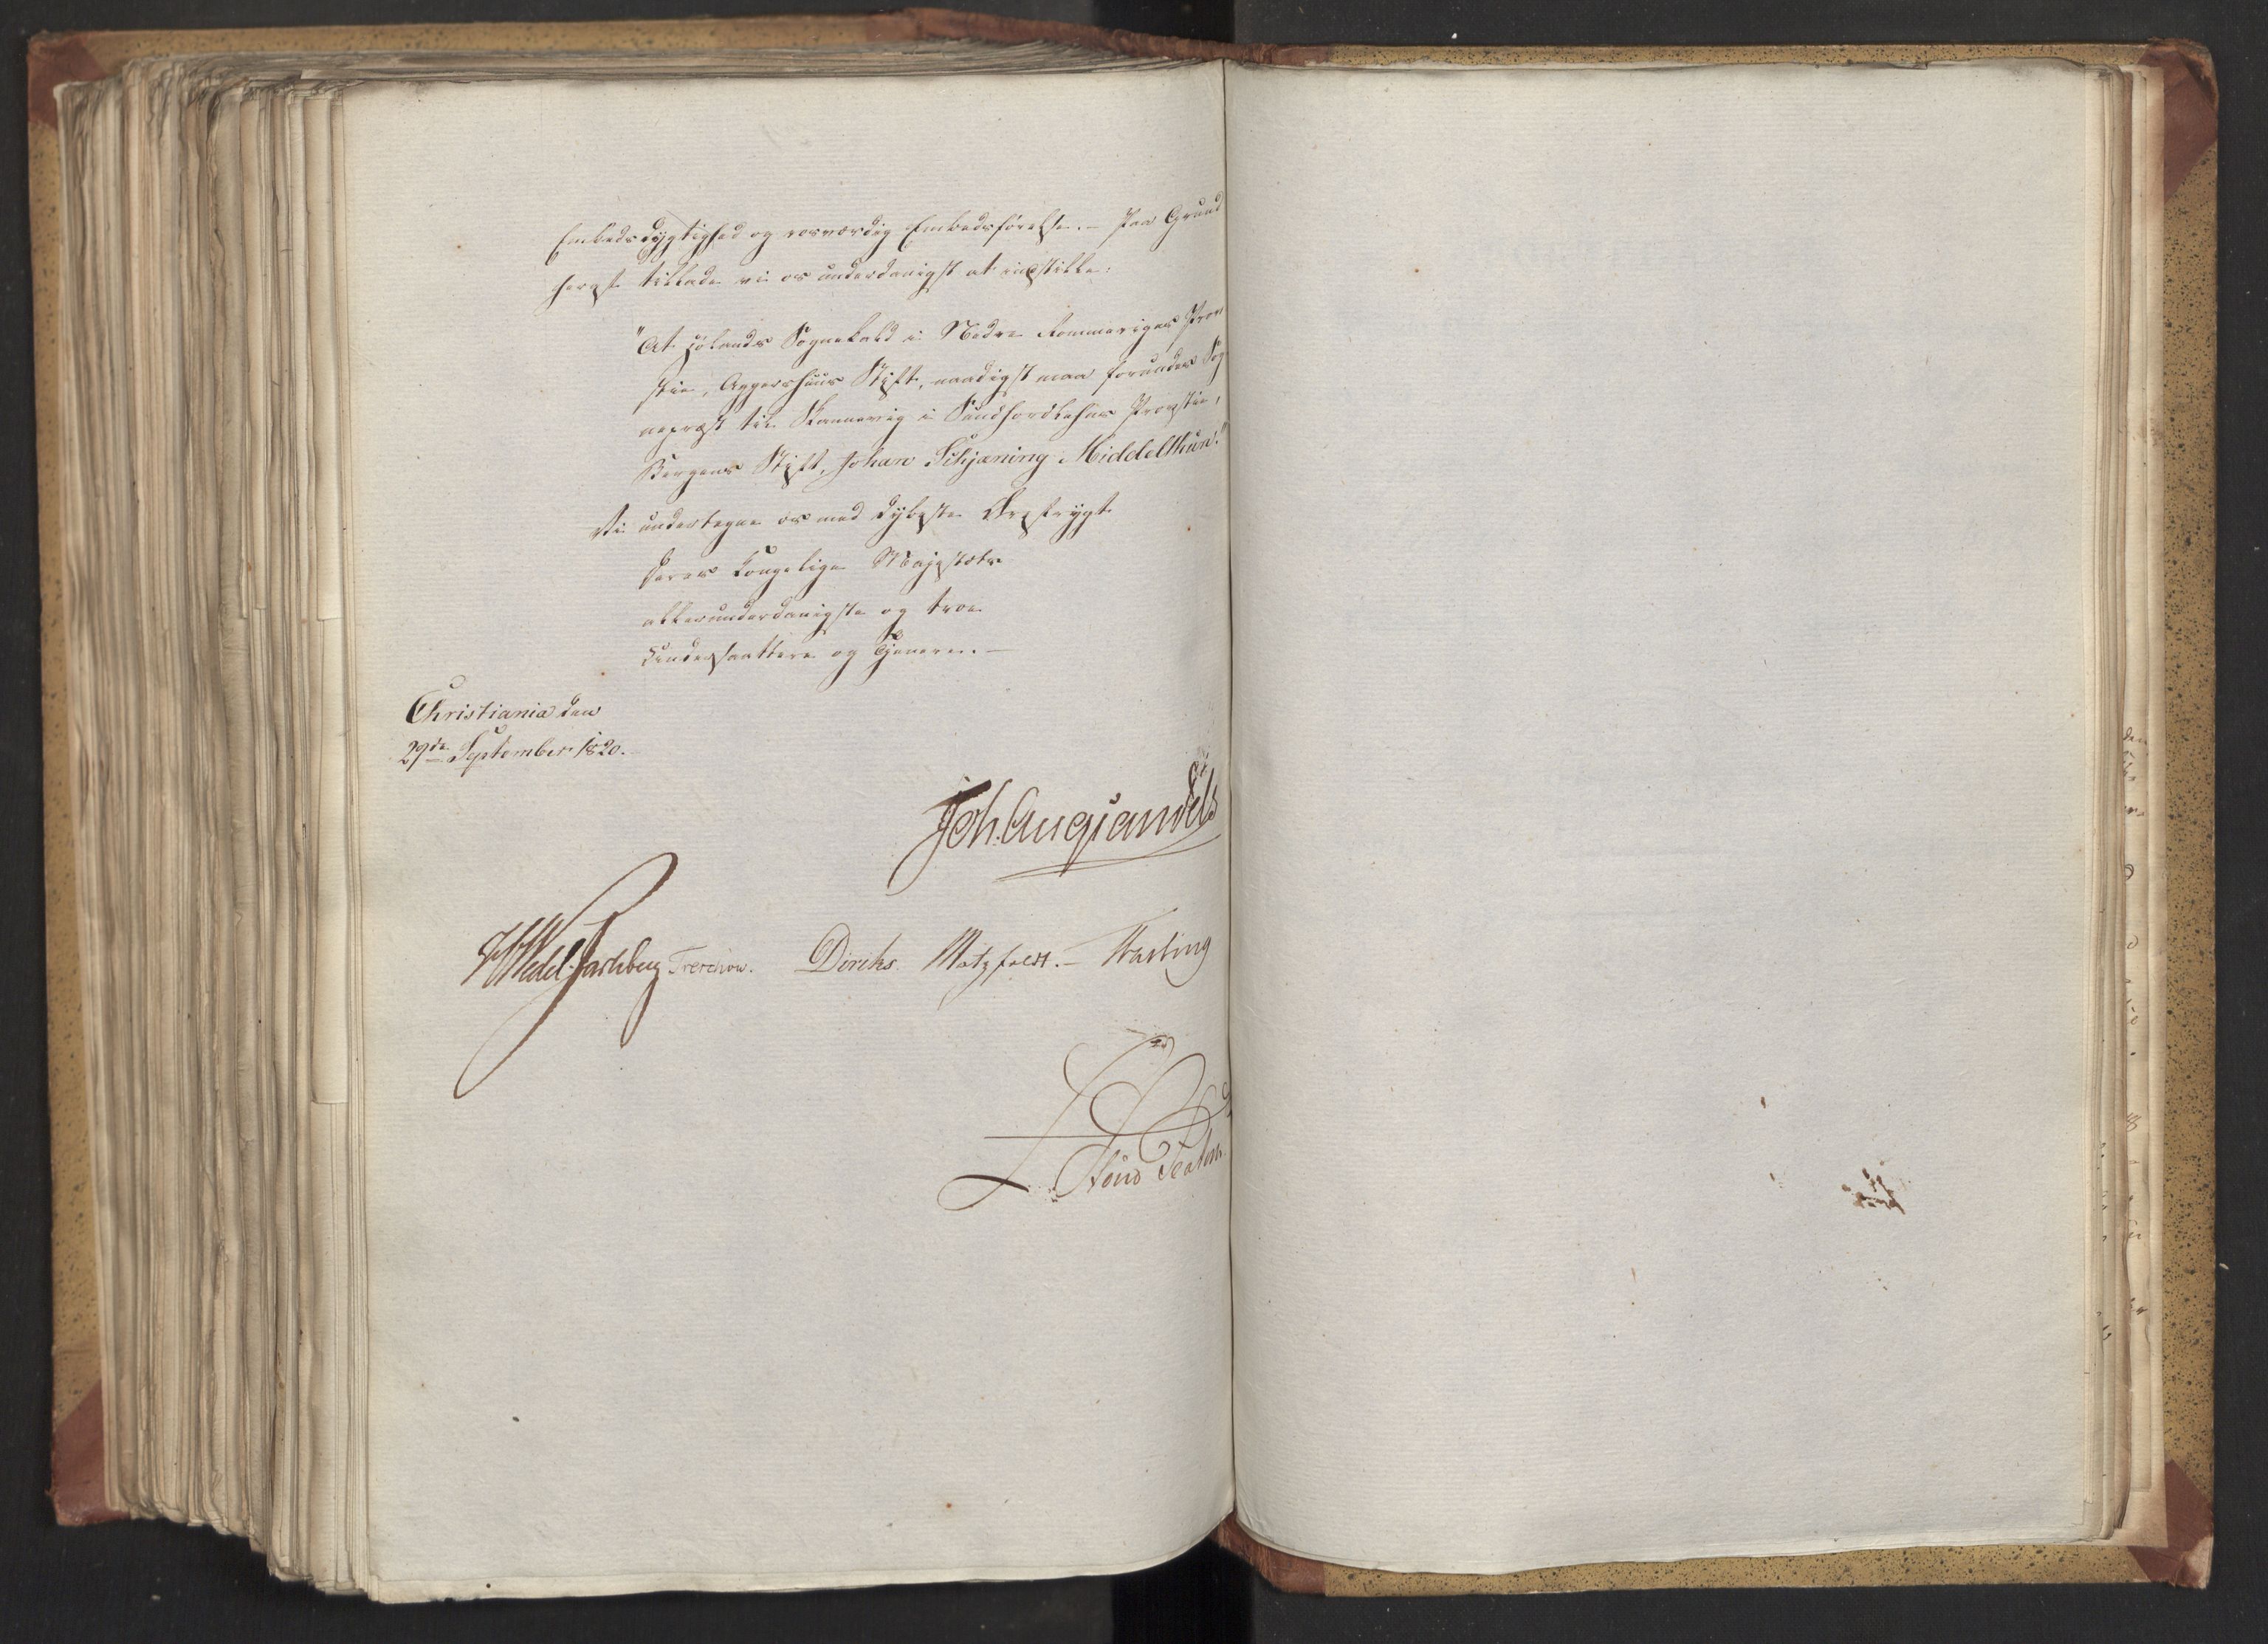 Embedsdygtighed og rosværdig Embedsførelse. – Paa Grund
heraf tillade vi os underdanigst at indstille:
"At Hølands Sognekald i Nedre Rommerigas Prov
stie, Aggershuus Stift, naadigst maa forundes Sog
nepræst til Skannevig i Sundhordlehns Provstie,
Bergens Stift, Johan Schjæning Middelthun."
Vi undertegne os med dybeste Ærefrygt
Deres Kongelige Majestæts
allerunderdanigste og troe
Undersaattere og Tjenere. –
Christiania den
29de September 1820.
Joh. Aug. Sandels
HWedel Jarlsberg Treschow. Diriks. Motzfeldt. – Fasting